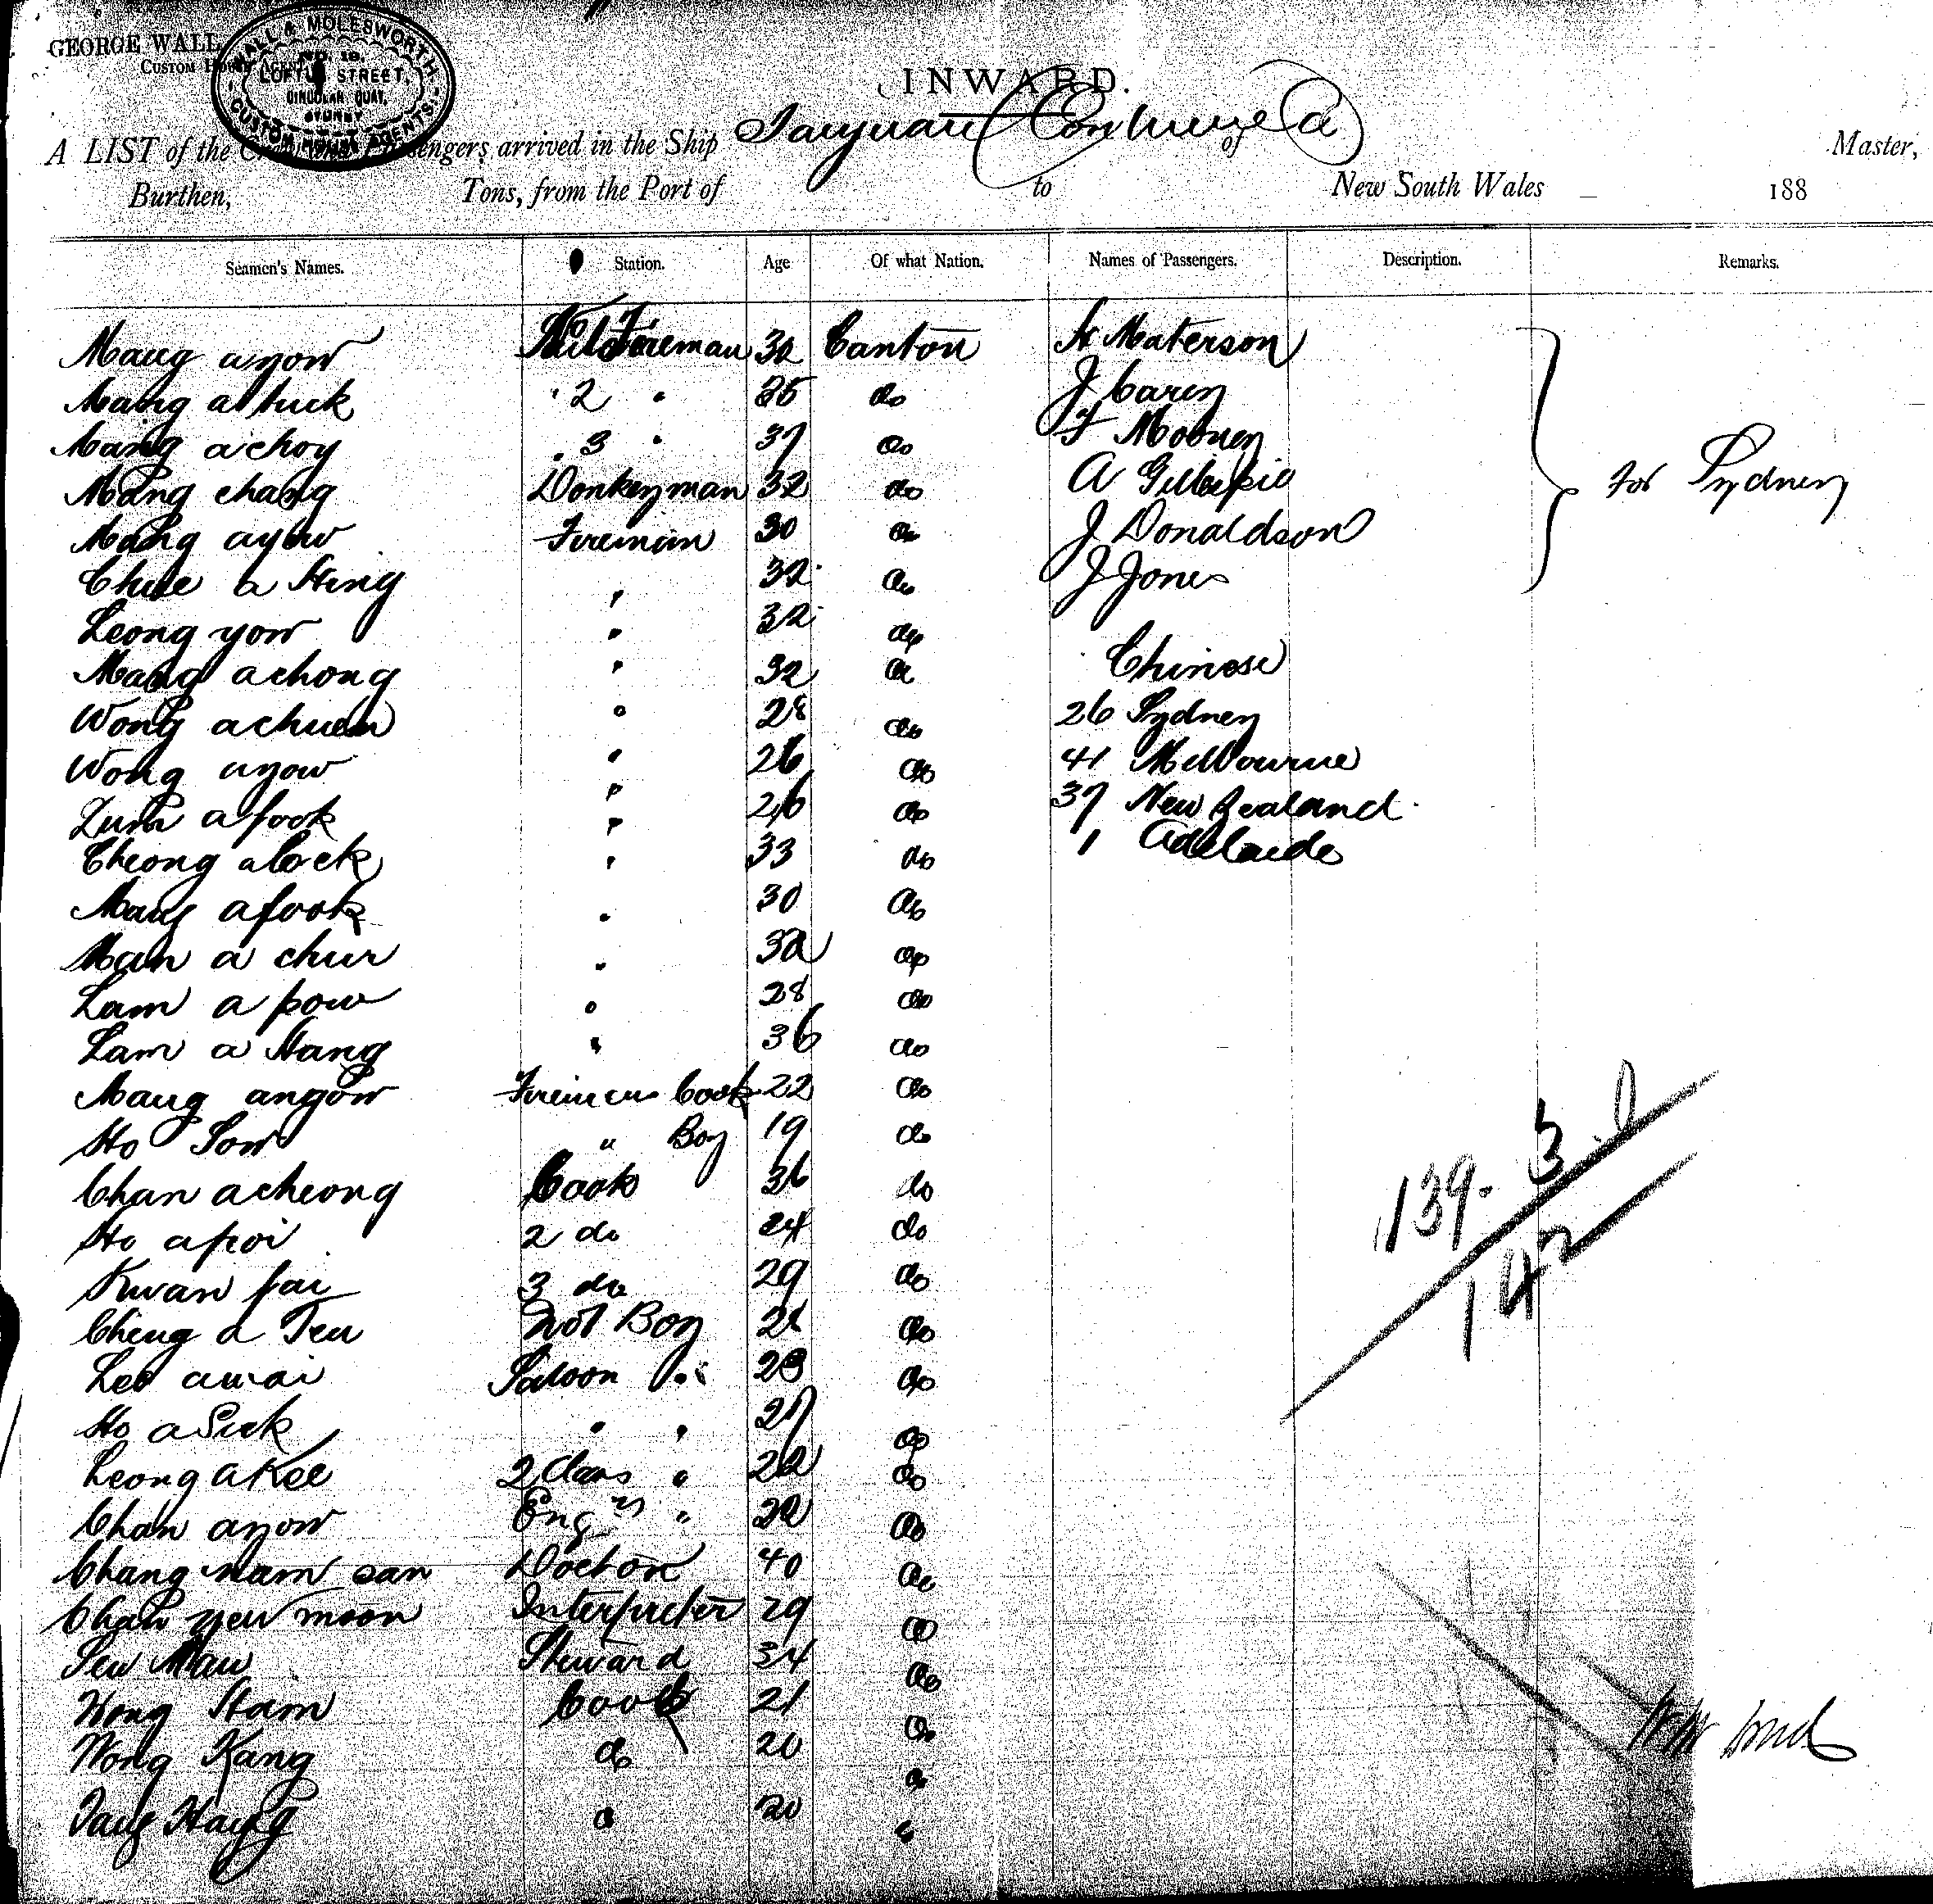 GEORGE WALL
CUSTOM HOUSE AGENT
WALL & MOLESWORTH
No. 10.
LOFTUS STREET,
CIRCULAR QUAY,
SYDNEY
CUSTOM HOUSE AGENTS.
INWARD.
A LIST of the Crew and Passengers arrived in the Ship Taiyuan Continued of Master,
Burthen, Tons, from the Port of to New South Wales 188
Seamen's Names. Station. Age Of what Nation. Names of Passengers. Description. Remarks.
Mang ayow Fireman 32 Canton Materson
Mang a tuck 2 " 35 do J Carey
Mang achoy 3 " 37 do F Mooney
Mang chang Donkeyman 32 do A Gillespie for Sydney
Mang ayow Fireman 30 do J Donaldson
a Hing " 32 do J Jones
Leong yow " 32 do
Mang achong " 32 do Chinese
Wong achuen " 28 do 26 Sydney
Wong ayow " 26 do 41 Melbourne
afook " 26 do 37 New Zealand
Cheong alock " 33 do 1 Adelaide
Mang afook " 30 do
Man a chur " 32 do
Lam a pow " 28 do
Lam a Hang " 36 do
Mang angow Firemens Cook 22 do
Ho Sow " Boy 19 do
Chan acheong Cook 36 do
Ho apoi 2 do 24 do
Kwan fai 3 do 29 do
Cheng a Boy 28 do
Lee awai Saloon " 23 do
Ho a Sick " " 27 do
Leong a Kee 2 Class " 22 do
Chan ayow Engrs " 22 do
Chang nam san Doctor 40 do
Chan yew moon Interpreter 29 do
Steward 34 do
Wong Ham Cook 21 do
Wong Kang do 20 do
Hang " 20 "
139. 3. 0
142